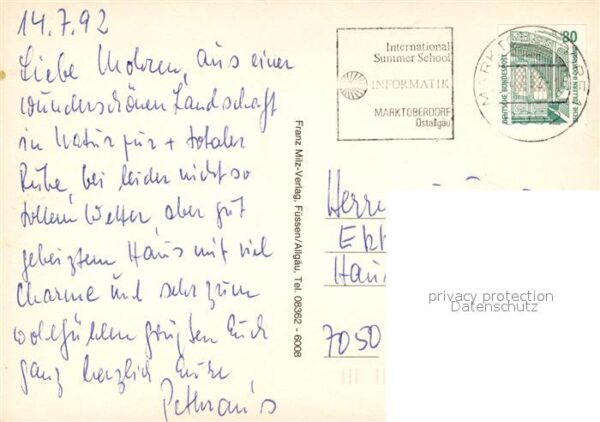 14.7.92
Liebe Mohren, aus einer
wunderschönen Landschaft
in Natur pur + totaler
Ruhe, bei leider nicht so
tollem Wetter, aber gut
geheiztem Haus mit viel
Charme und sehr zum
wohlfühlen grüßen Euch
ganz herzlich Eure
Franz Milz-Verlag, Füssen/Allgäu, Tel. 08362 - 6008
International
Summer School
INFORMATIK
MARKTOBERDORF
Ostallgäu
80
DEUTSCHE BUNDESPOST
7050
privacy protection
Datenschutz